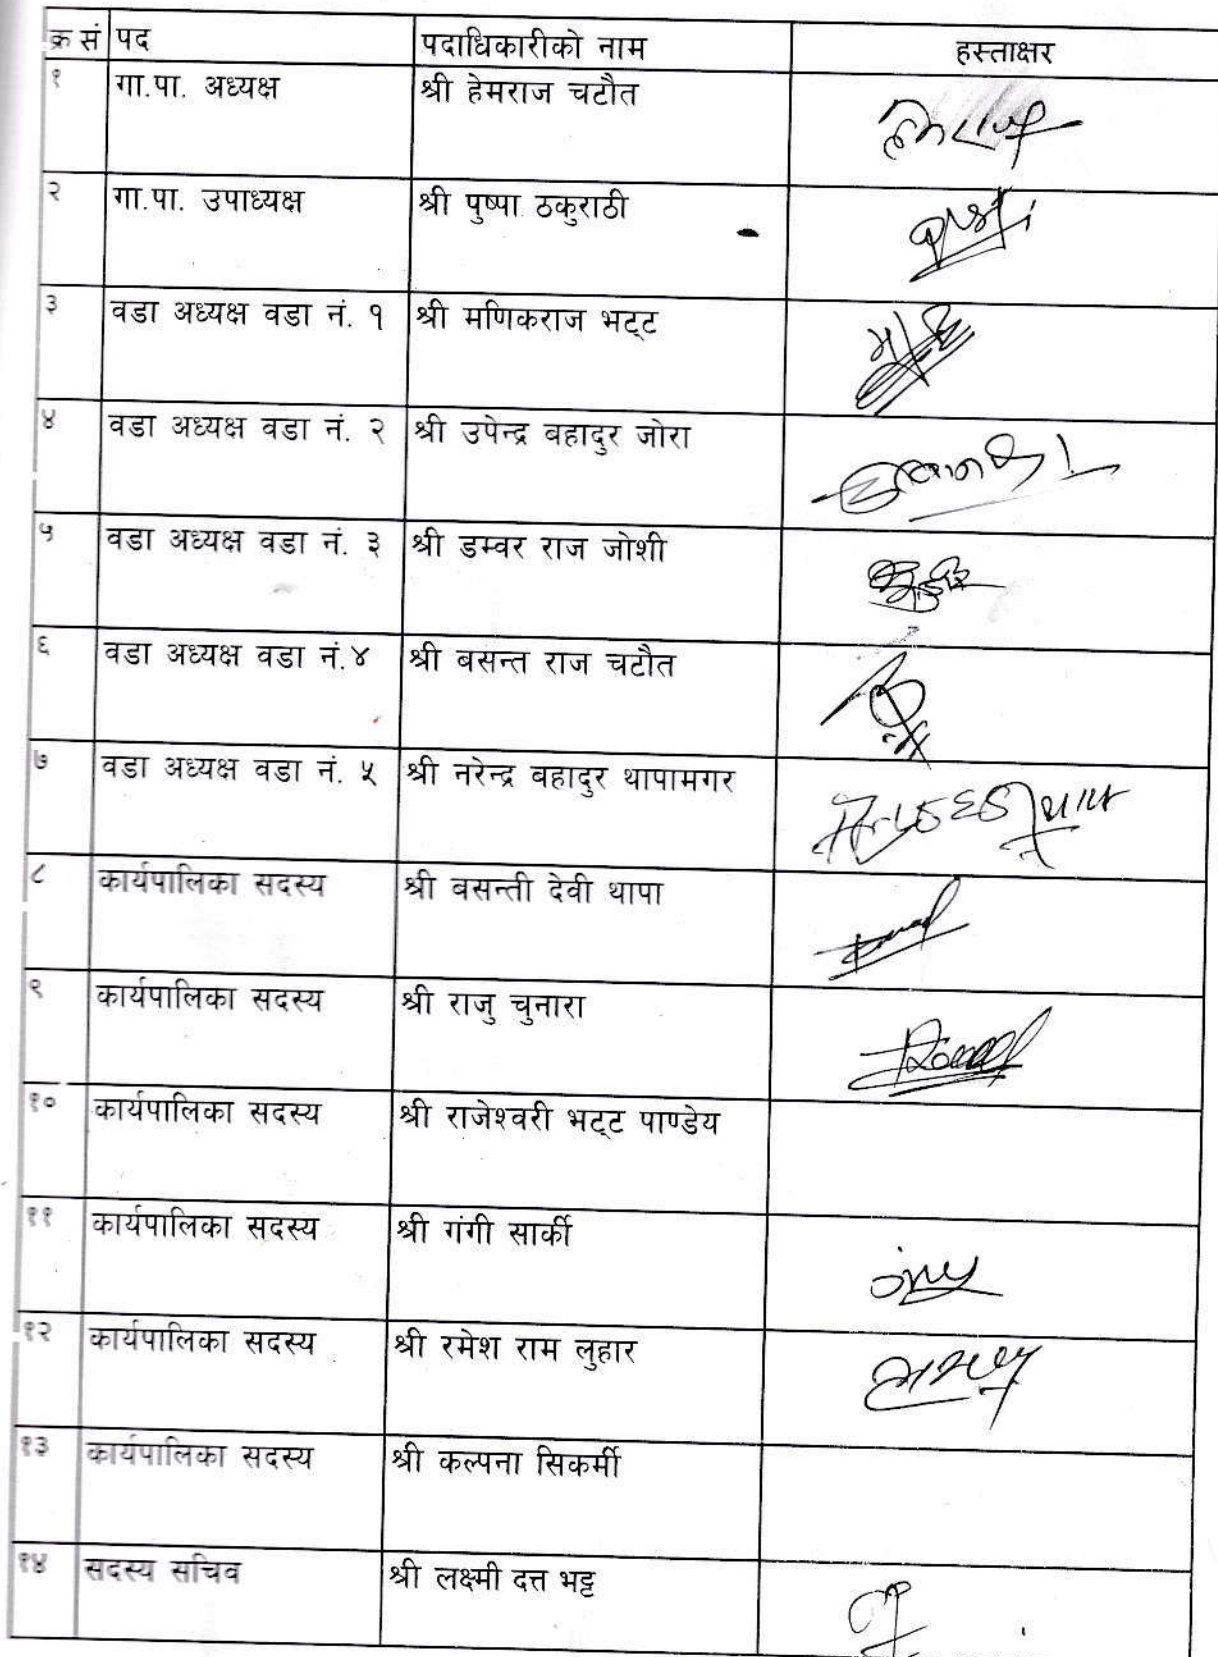 क्र सं पद पदाधिकारीको नाम हस्ताक्षर
१ गा.पा. अध्यक्ष श्री हेमराज चटौत
२ गा.पा. उपाध्यक्ष श्री पुष्पा ठकुराठी
३ वडा अध्यक्ष वडा नं. १ श्री मणिकराज भट्ट
४ वडा अध्यक्ष वडा नं. २ श्री उपेन्द्र बहादुर जोरा
५ वडा अध्यक्ष वडा नं. ३ श्री डम्वर राज जोशी
६ वडा अध्यक्ष वडा नं.४ श्री बसन्त राज चटौत
७ वडा अध्यक्ष वडा नं. ५ श्री नरेन्द्र बहादुर थापामगर
८ कार्यपालिका सदस्य श्री बसन्ती देवी थापा
९ कार्यपालिका सदस्य श्री राजु चुनारा
१० कार्यपालिका सदस्य श्री राजेश्वरी भट्ट पाण्डेय
११ कार्यपालिका सदस्य श्री गंगी सार्की
१२ कार्यपालिका सदस्य श्री रमेश राम लुहार
१३ कार्यपालिका सदस्य श्री कल्पना सिकर्मी
१४ सदस्य सचिव श्री लक्ष्मी दत्त भट्ट